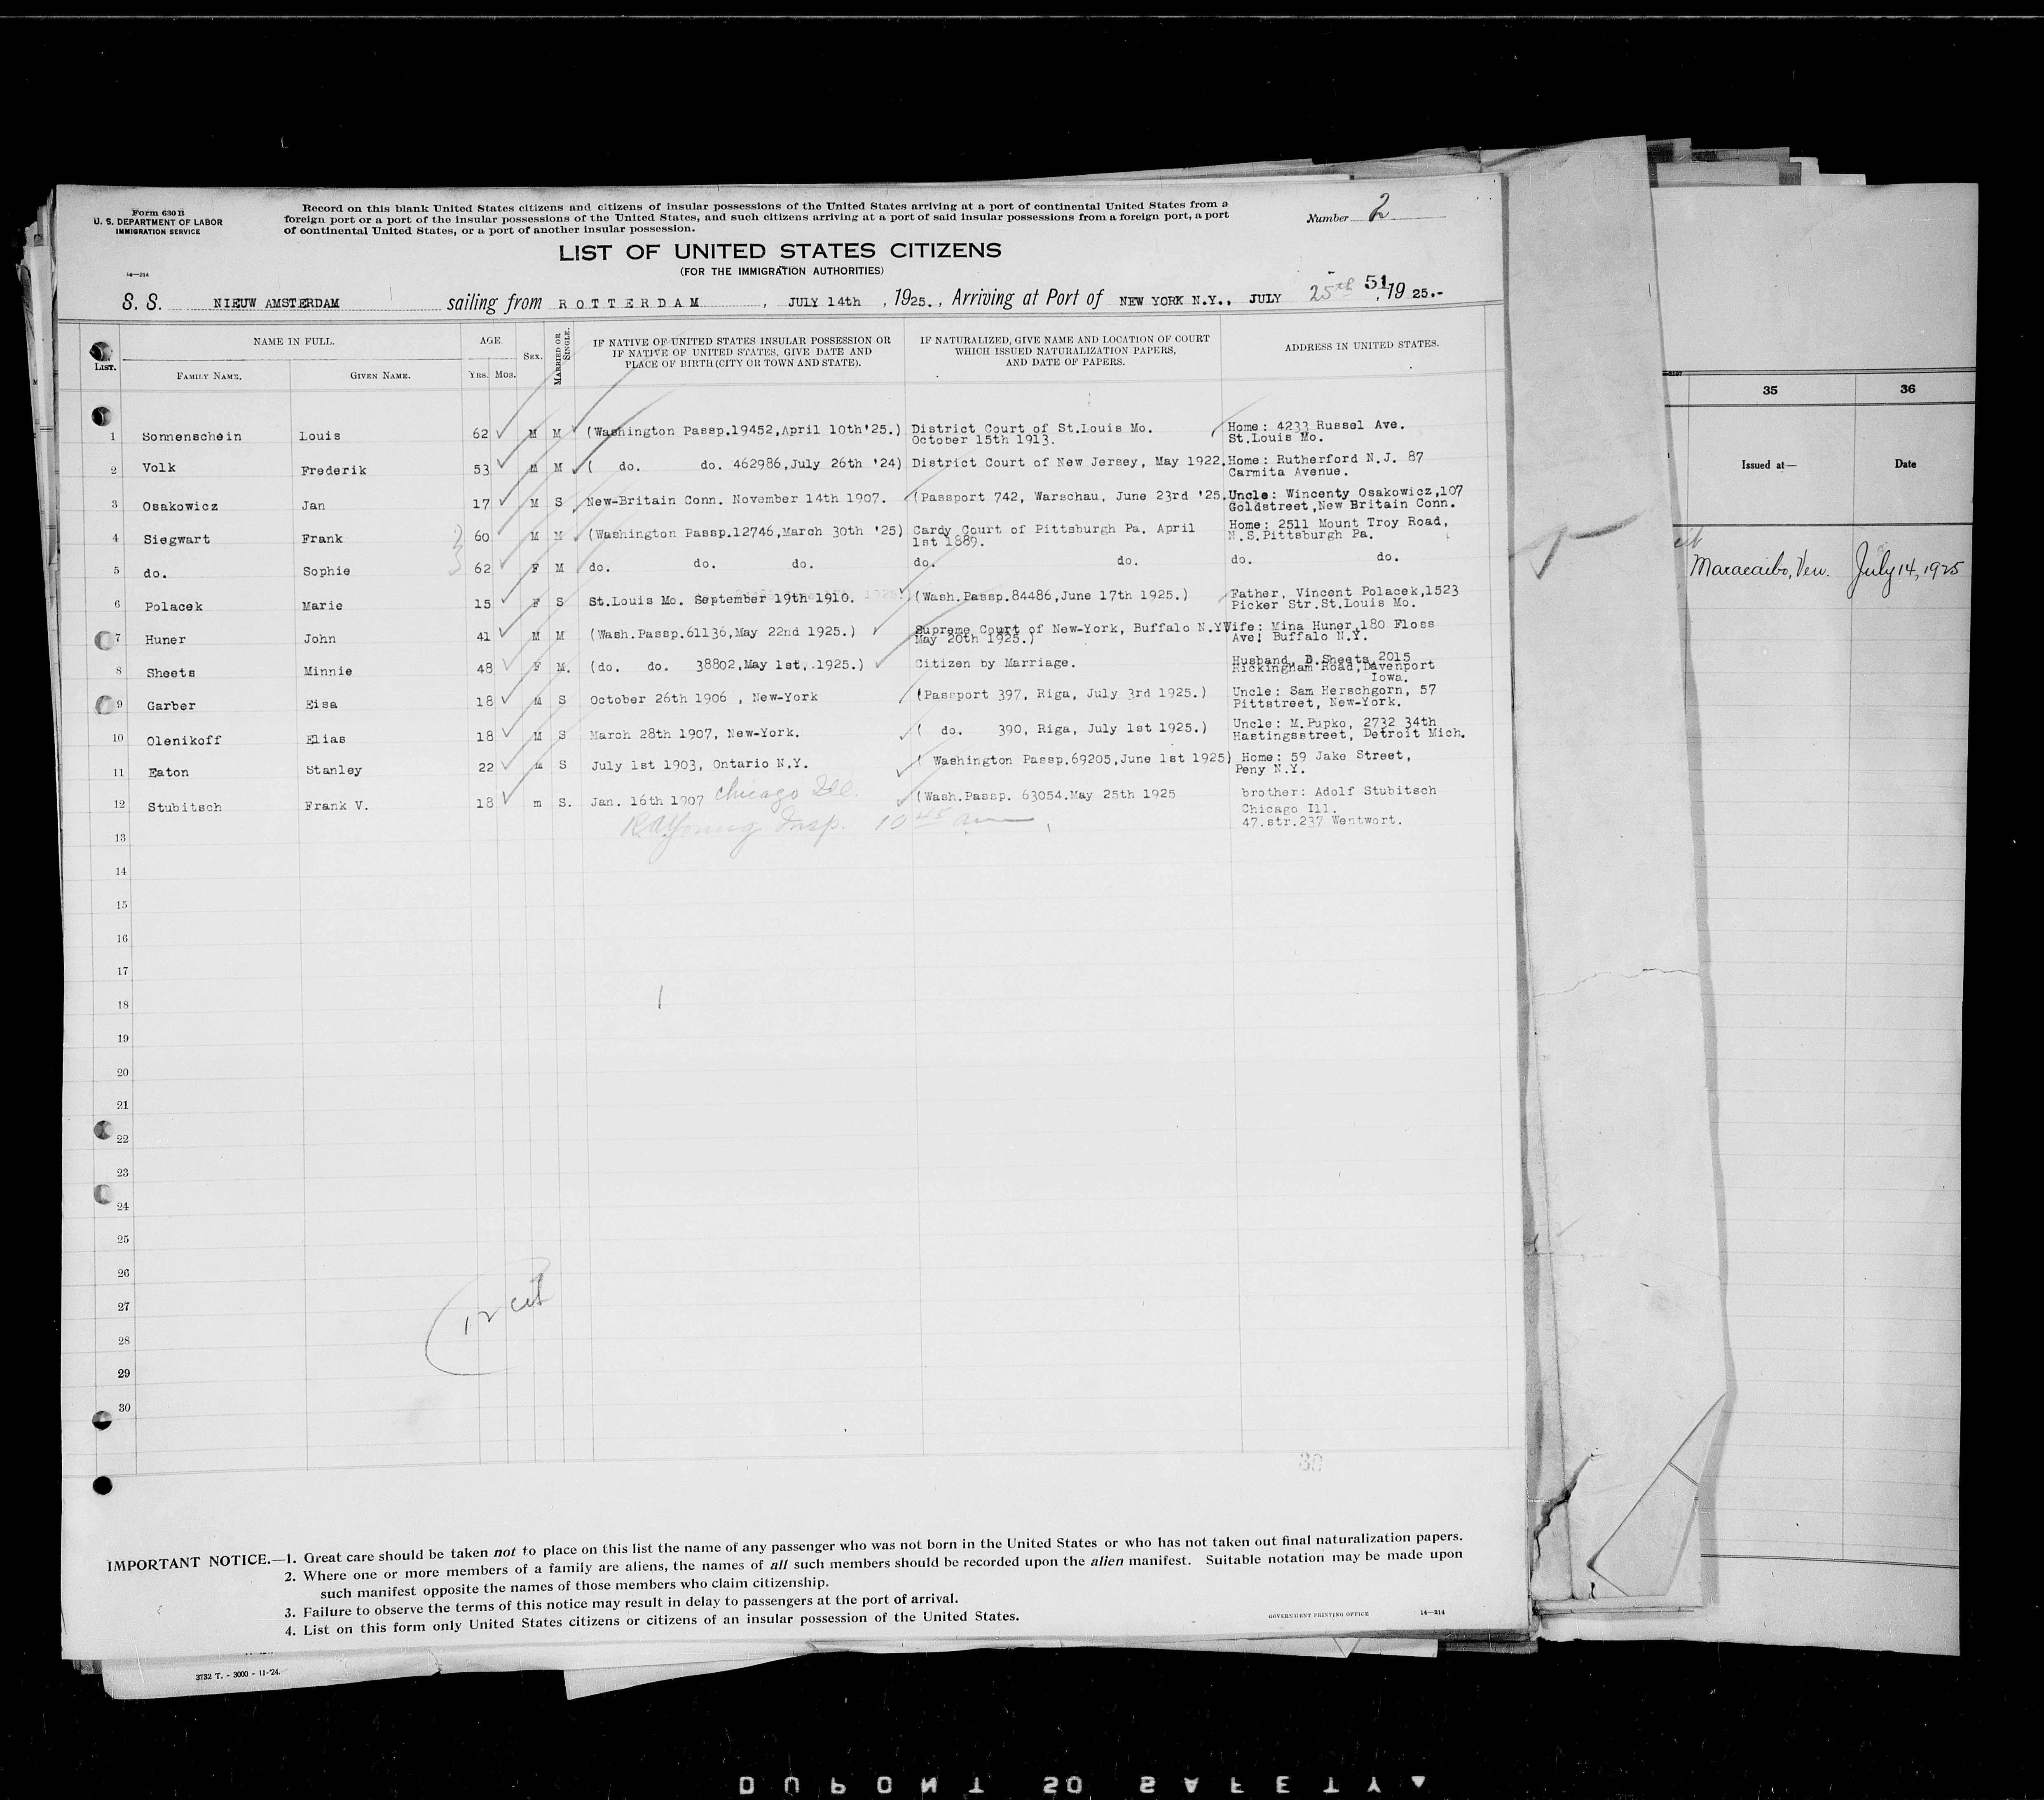 Form 630 B
U. S. DEPARTMENT OF LABOR
IMMIGRATION SERVICE
Record on this blank United States citizens and citizens of insular possessions of the United States arriving at a port of continental United States from a
foreign port or a port of the insular possessions of the United States, and such citizens arriving at a port of said insular possessions from a foreign port, a port
of continental United States, or a port of another insular possession.
Number 2
LIST OF UNITED STATES CITIZENS
(FOR THE IMMIGRATION AUTHORITIES)
14—214
S. S. NIEUW AMSTERDAM sailing from ROTTERDAM, JULY 14th, 1925., Arriving at Port of NEW YORK N.Y., JULY 25th 51, 1925.-
LIST. NAME IN FULL. AGE Sex. MARRIED OR SINGLE. IF NATIVE OF UNITED STATES INSULAR POSSESSION OR
IF NATIVE OF UNITED STATES, GIVE DATE AND
PLACE OF BIRTH (CITY OR TOWN AND STATE).
IF NATURALIZED, GIVE NAME AND LOCATION OF COURT
WHICH ISSUED NATURALIZATION PAPERS,
AND DATE OF PAPERS.
ADDRESS IN UNITED STATES.
FAMILY NAME. GIVEN NAME. YRS. MOS.
1 Sonnenschein Louis 62 M M (Washington Passp.19452,April 10th'25.) District Court of St.Louis Mo. Home: 4233 Russel Ave.
October 15th 1913. St.Louis Mo.
2 Volk Frederik 53 M M ( do. do. 462986,July 26th '24) District Court of New Jersey, May 1922. Home: Rutherford N.J. 87
Carmita Avenue.
3 Osakowicz Jan 17 M S New-Britain Conn. November 14th 1907. (Passport 742, Warschau, June 23rd '25. Uncle: Wincenty Osakowicz,107
Goldstreet,New Britain Conn.
4 Siegwart Frank 60 M M (Washington Passp.12746,March 30th '25) Cardy Court of Pittsburgh Pa. April Home: 2511 Mount Troy Road,
1st 1889. N.S.Pittsburgh Pa.
5 do. Sophie 62 F M do. do. do. do. do. do. do.
6 Polacek Marie 15 F S St.Louis Mo. September 19th 1910. (Wash.Passp.84486,June 17th 1925.) Father, Vincent Polacek,1523
Picker Str.St.Louis Mo.
7 Huner John 41 M M (Wash.Passp.61136,May 22nd 1925.) Supreme Court of New-York, Buffalo N.Y Wife: Mina Huner,180 Floss
May 20th 1925.) Ave. Buffalo N.Y.
8 Sheets Minnie 48 F M. (do. do. 38802,May 1st,.1925.) Citizen by Marriage. Husband, D.Sheets 2015
Rickingham Road,Davenport
Iowa.
9 Garber Eisa 18 M S October 26th 1906 , New-York (Passport 397, Riga, July 3rd 1925.) Uncle: Sam Herschgorn, 57
Pittstreet, New-York.
10 Olenikoff Elias 18 M S March 28th 1907, New-York. ( do. 390, Riga, July 1st 1925.) Uncle: M.Pupko, 2732 34th
Hastingsstreet, Detroit Mich.
11 Eaton Stanley 22 m S July 1st 1903, Ontario N.Y. ( Washington Passp.69205,June 1st 1925) Home: 59 Jake Street,
Peny N.Y.
12 Stubitsch Frank V. 18 m S. Jan. 16th 1907 Chicago Ill. (Wash.Passp. 63054.May 25th 1925 brother: Adolf Stubitsch
Chicago Ill.
47.str.237 Wentwort.
RAYoung Insp. 10 45 am
13
14
15
16
17
18
19
20
21
22
23
24
25
26
27
28
29
30
12 cit
30
IMPORTANT NOTICE.—1. Great care should be taken not to place on this list the name of any passenger who was not born in the United States or who has not taken out final naturalization papers.
2. Where one or more members of a family are aliens, the names of all such members should be recorded upon the alien manifest. Suitable notation may be made upon
such manifest opposite the names of those members who claim citizenship.
3. Failure to observe the terms of this notice may result in delay to passengers at the port of arrival.
4. List on this form only United States citizens or citizens of an insular possession of the United States.
GOVERNMENT PRINTING OFFICE 14—214
3732 T. - 3000 - 11-'24.
35 36
Issued at— Date
Maracaibo, Ven. July 14, 1925
DUPONT 50 SAFETY